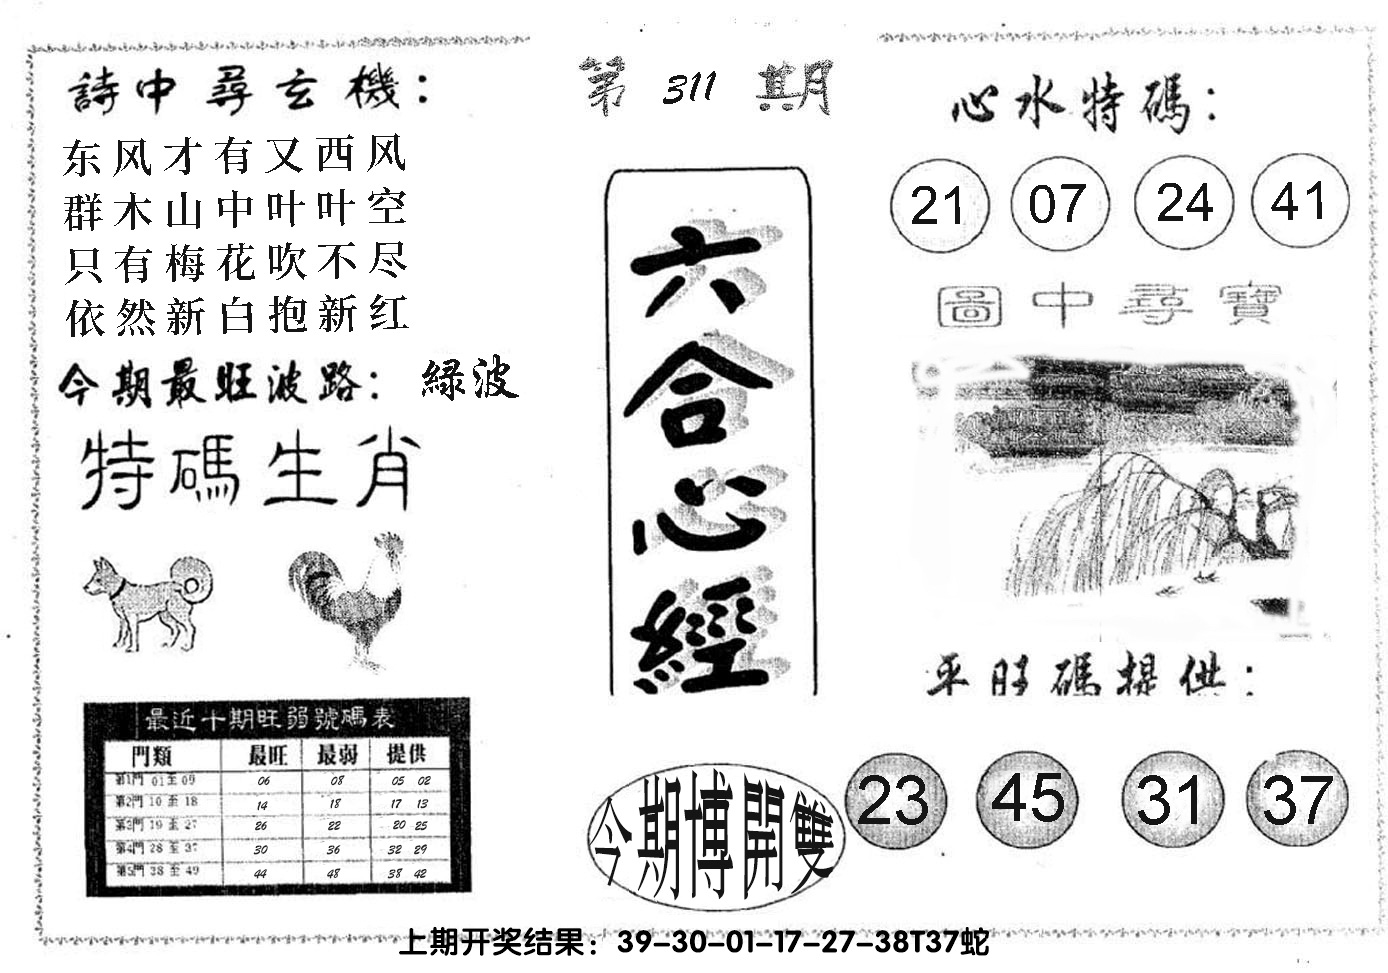 詩中尋玄機：
东风才有又西风
群木山中叶叶空
只有梅花吹不尽
依然新白抱新红
今期最旺波路：綠波
特碼生肖
最近十期旺弱號碼表
門類 最旺 最弱 提供
第1門 01至09 06 08 05 02
第2門 10至18 14 18 17 13
第3門 19至27 26 22 20 25
第4門 28至37 30 36 32 29
第5門 38至49 44 48 38 42
第311期
六合心經
今期博開雙
心水特碼：
21 07 24 41
圖中尋寶
平旺碼提供：
23 45 31 37
上期开奖结果：39-30-01-17-27-38T37蛇